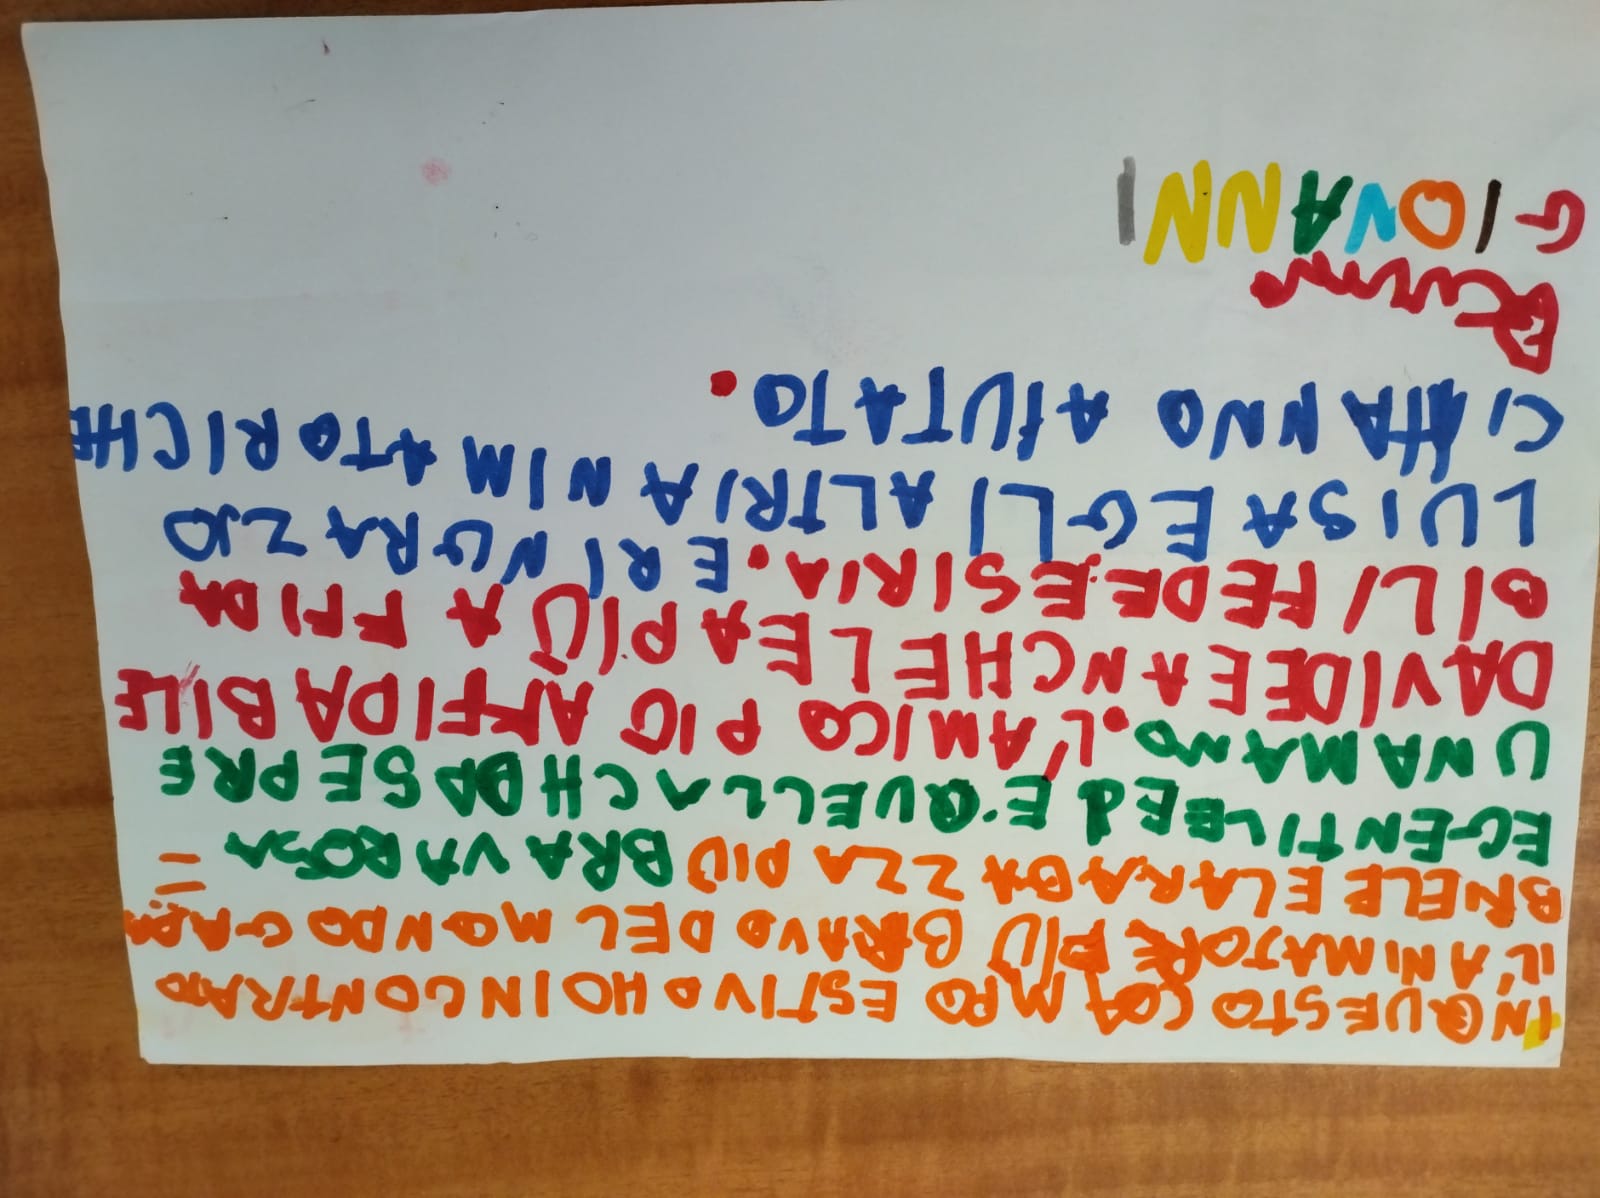 IN QUESTO COAMPO ESTIVO HO INCONTRATO
IL'ANIMATORE PIÙ BRAVO DEL MONDO GABR=
BRIELE E LA RAGAZZA PIÙ BRAVA ROSA
E GENTILE ED E' QUELLA CH DA SEPRE
UNA MANO. L'AMICO PIÙ AFFIDABILE
DAVIDE E ANCHE LE A PIÙ AFFIDA
BILI FEDE E SIRIA. E RINGRAZIO
LUISA E GLI ALTRI ANIMATORI CHE
CI HANNO AIUTATO.
GIOVANNI